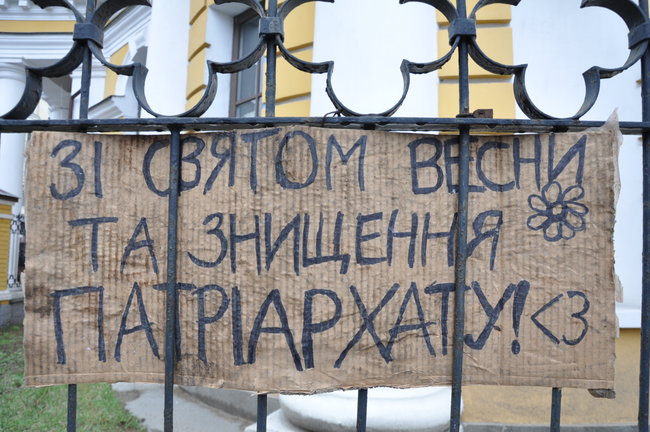 ЗІ СВЯТОМ ВЕСНИ
ТА ЗНИЩЕННЯ
ПАТРІАРХАТУ! <3